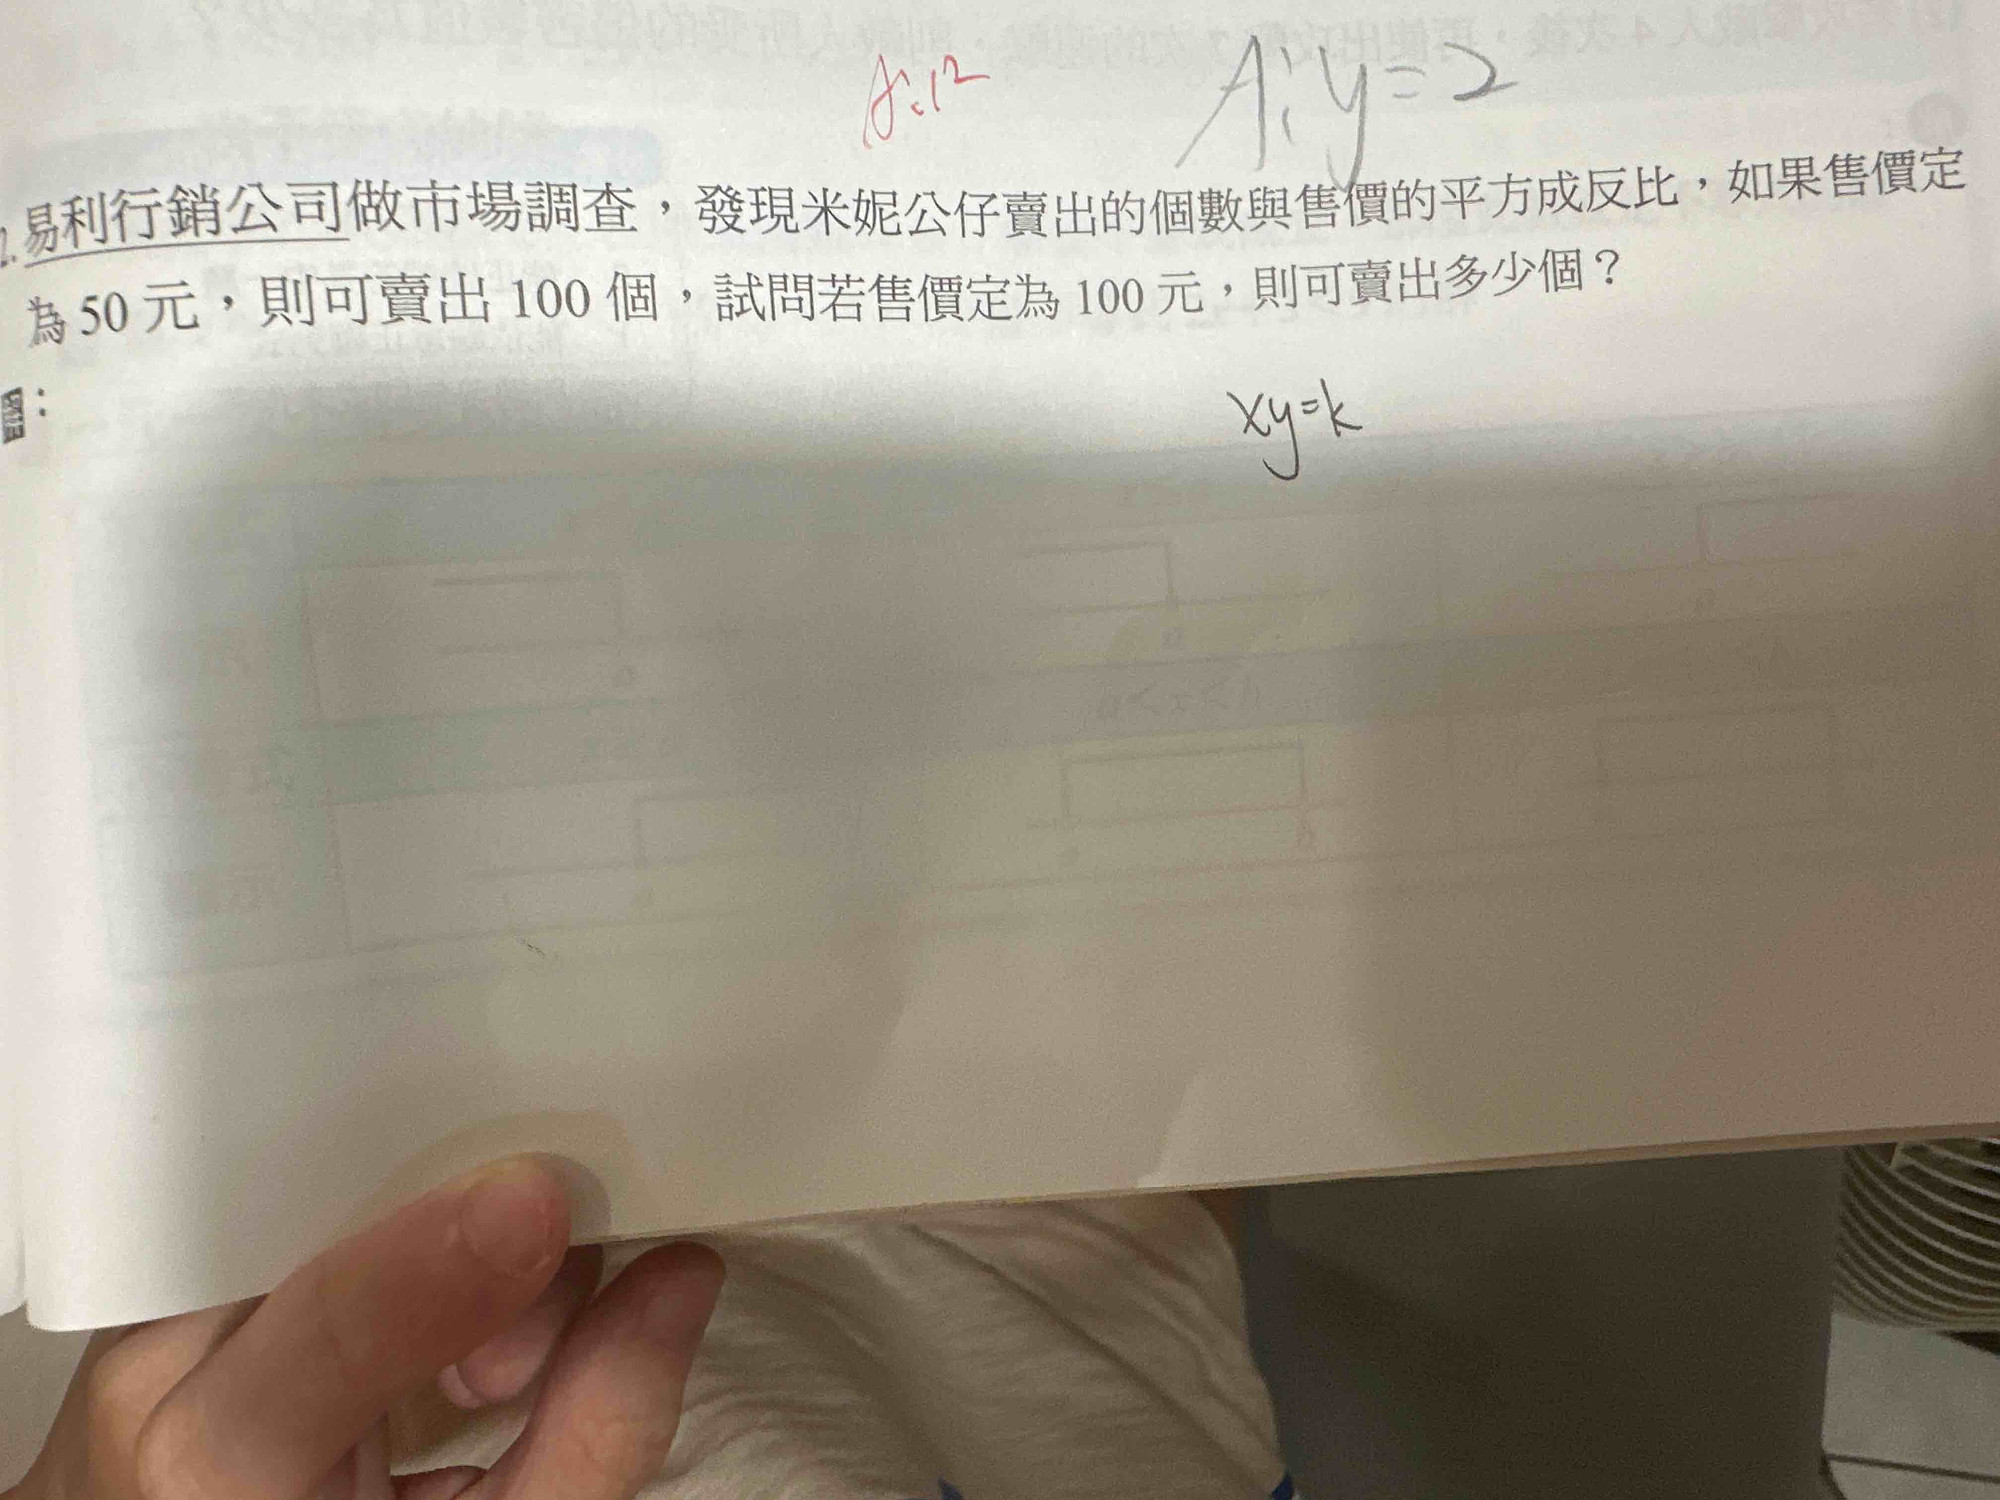 A:12
A:y=2
2.易利行銷公司做市場調查,發現米妮公仔賣出的個數與售價的平方成反比,如果售價定
為50元,則可賣出100個,試問若售價定為100元,則可賣出多少個?
:
xy=k